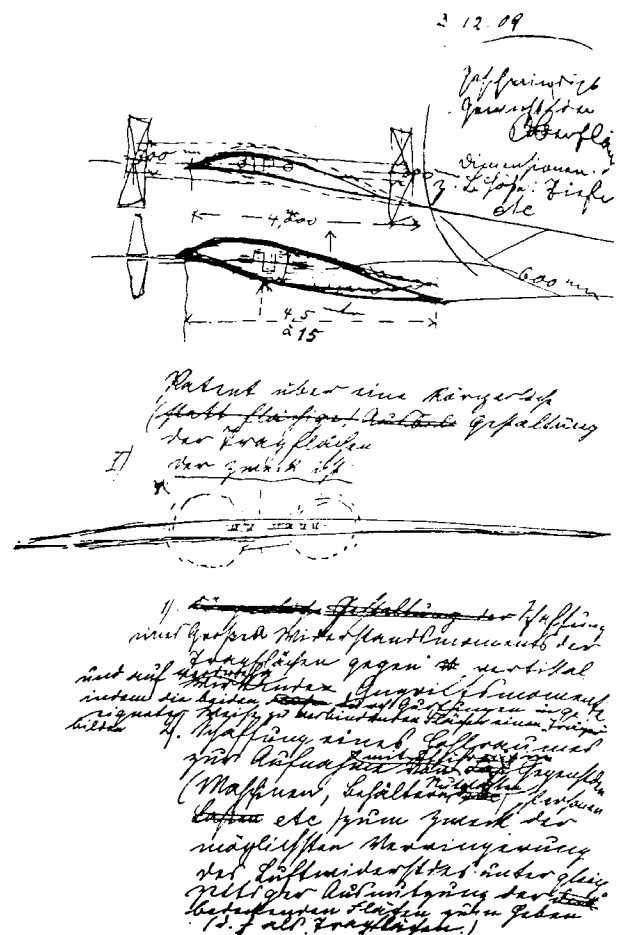 3 12. 09
Oberflä
Dimensionen.
z. B. Höhe. Tiefe
etc
4,800
600 m
4,5 m
à 15
Patent über eine körperliche
(statt flächige) Ausbild Gestaltung
der Tragflächen
I)
der Zweck ist
1). Körperliche Gestaltung der Schaffung
eines großen Widerstandsmoments der
Tragflächen gegen vertikal
wirkenden Angriffsmomente
und auf
indem die beiden durch Gurtungen in ge
eigneter Weise zu verbindenden Flächen einen Träger
bilden
2. Schaffung eines Hohlraumes
zur Aufnahme von Gegenstden
(Maschinen, Behältern, Nutzlasten Personen
Lasten etc) zum Zweck der
möglichsten Verringerung
des Luftwiderstdes unter gleich
zeitiger Ausnutzung der
bedeckenden Flächen zum Heben
(d. h als Tragflächen)